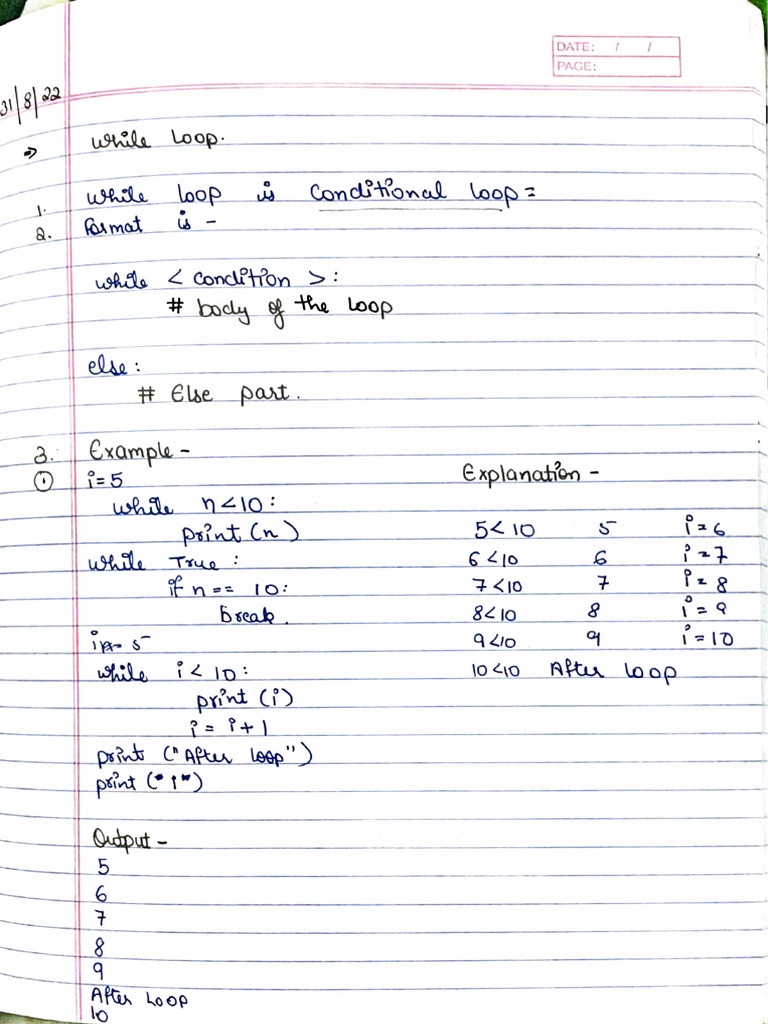 DATE: / /
PAGE:
31/8/22
⇒ While Loop.
1. While loop is Conditional loop =
2. Format is -
while < condition > :
# body of the loop
else :
# Else part.
3. Example -
① i = 5
Explanation -
while n < 10 :
print (n)
5 < 10 5 i = 6
while True :
6 < 10 6 i = 7
if n == 10 :
7 < 10 7 i = 8
break.
8 < 10 8 i = 9
i = 5
9 < 10 9 i = 10
while i < 10 :
10 < 10 After loop
print (i)
i = i + 1
print ("After loop")
print ("i")
Output -
5
6
7
8
9
After Loop
10